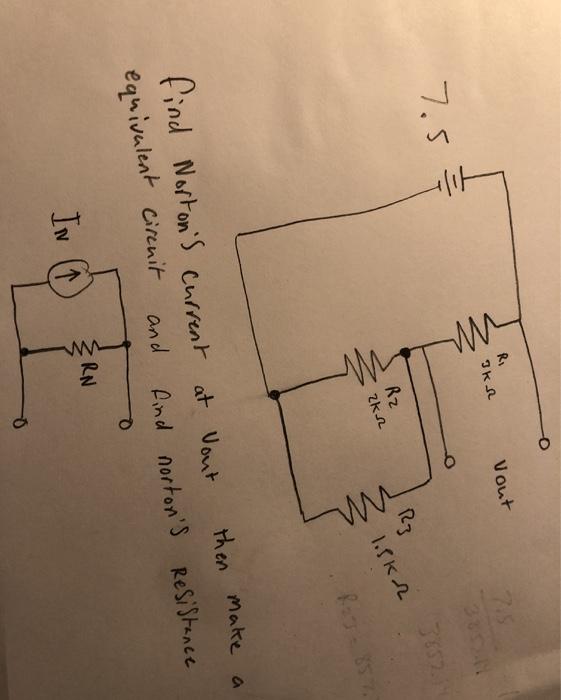 7.5
R1
3KΩ
Vout
R2
2KΩ
R3
1.5KΩ
7.5
Find Norton's current at Vout then make a
equivalent circuit and find norton's Resistance
IN
RN